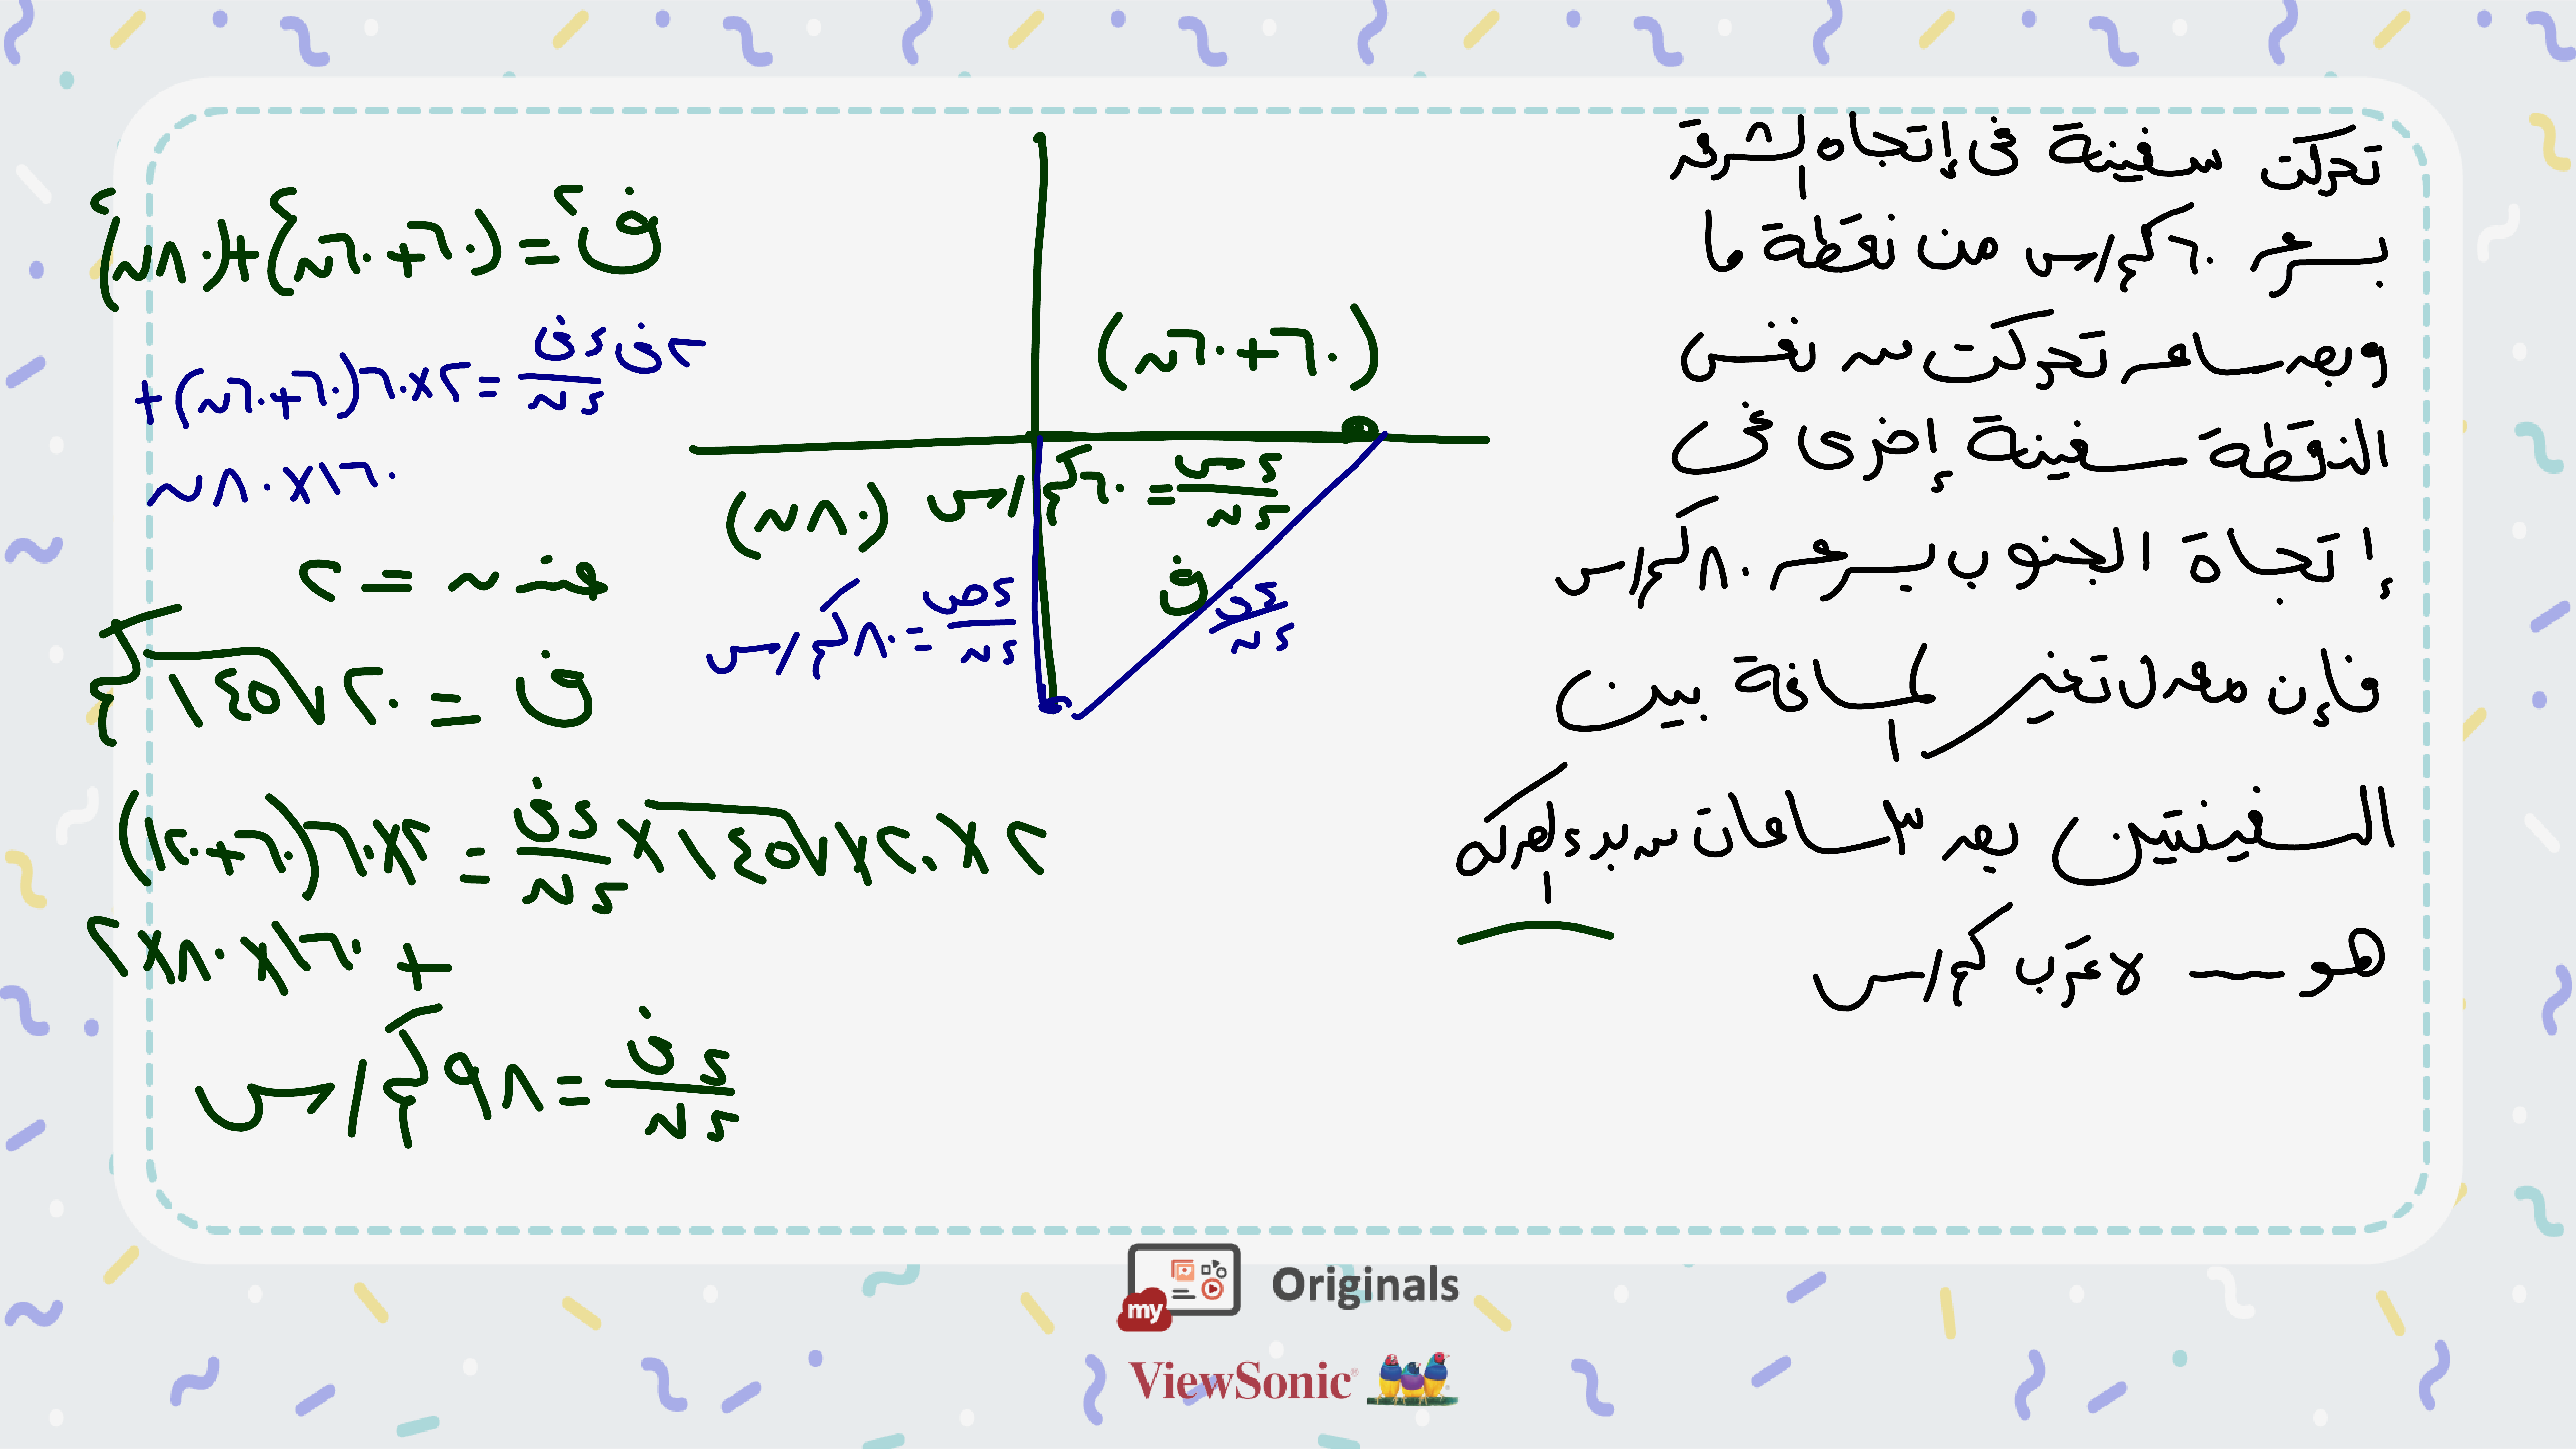 تحركت سفينة فى إتجاه الشرق
بسرعة ٦٠ كم/س من نقطة ما
وبعد ساعة تحركت من نفس
النقطة سفينة إخرى فى
إتجاة الجنوب بسرعة ٨٠ كم/س
فإن معدل تغير المسافة بين
السفينتين بعد ٣ ساعات من بدء الحركة
هو ــــ لاقرب كم/س
(٦٠+٦٠ن)
ءس/ءن = ٦٠ كم/س
(٨٠ن)
ءص/ءن = ٨٠ كم/س
ف
ءف/ءن
ف² = (٦٠+٦٠ن)² + (٨٠ن)²
٢ف ءف/ءن = ٢×٦٠(٦٠+٦٠ن) +
١٦٠×٨٠ن
عند ن = ٢
ف = ٢٠√١٤٥ كم
٢×٢٠×√١٤٥×ءف/ءن = ٢×٦٠(٦٠+١٢٠)
+ ١٦٠×٨٠×٢
ءف/ءن = ٩٨ كم/س
my Originals
ViewSonic